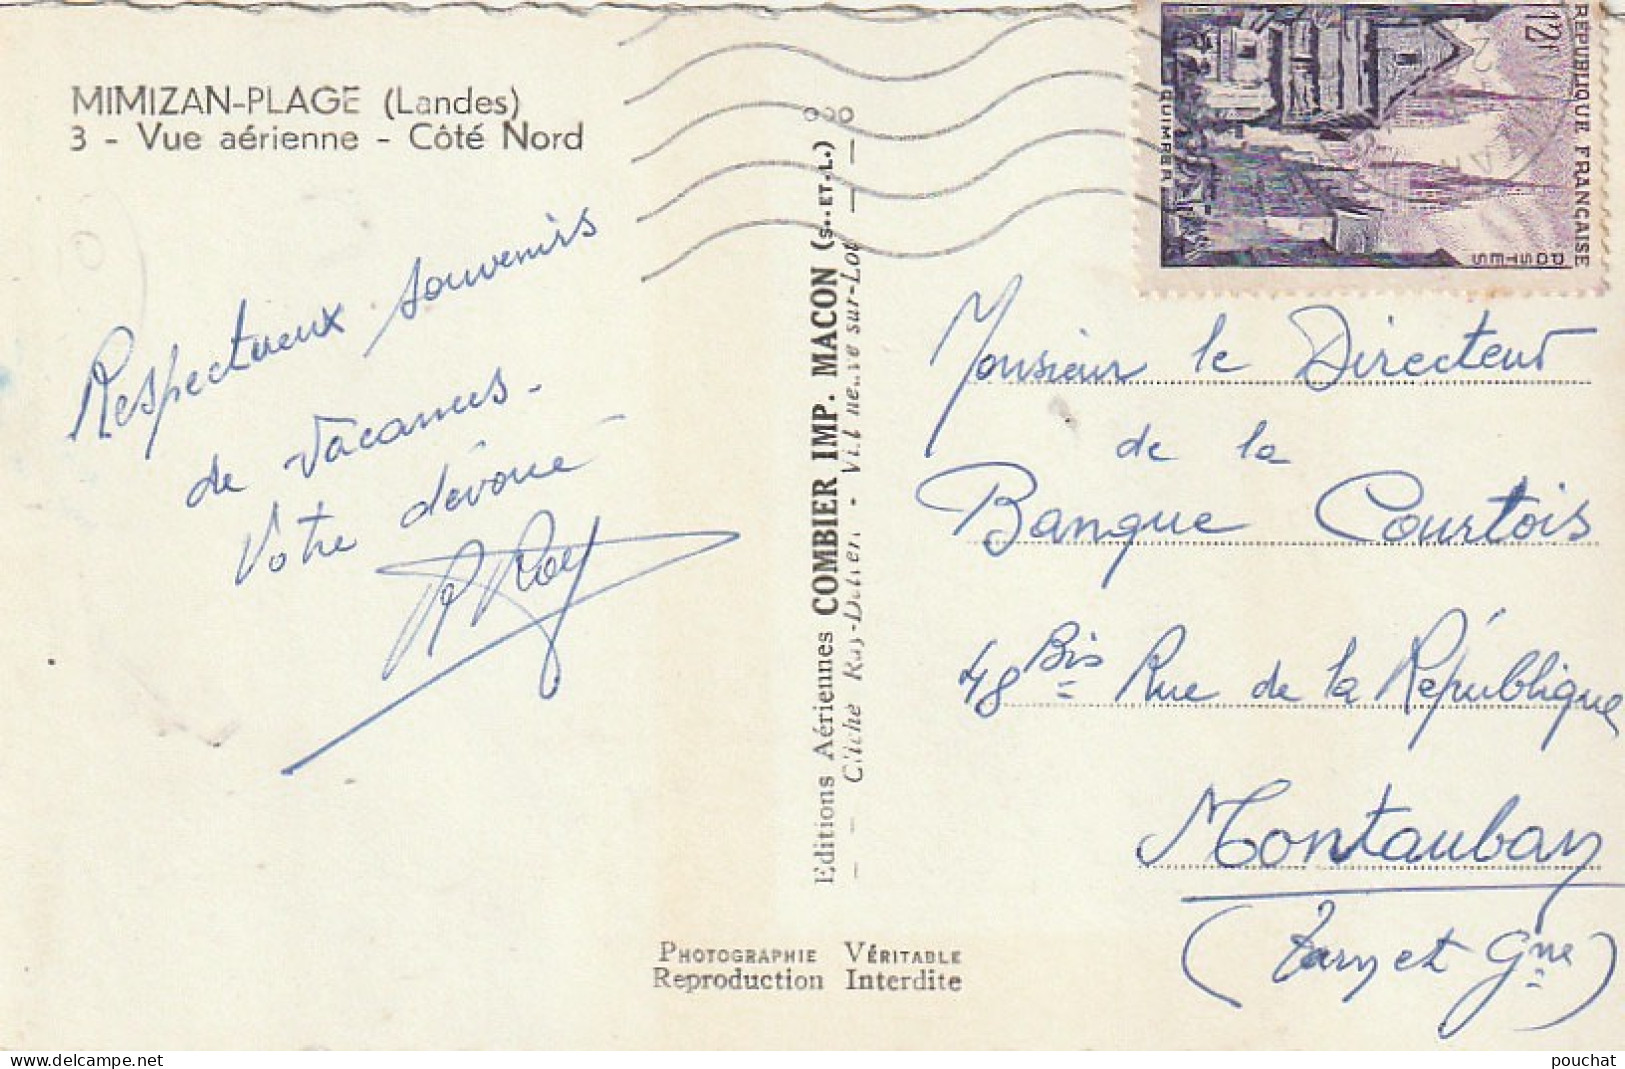 MIMIZAN-PLAGE (Landes)
3 - Vue aérienne - Côté Nord
Respectueux souvenirs
de vacances.
Votre dévoué
Editions Aériennes COMBIER IMP. MACON (S.-ET-L.)
Cliché Ray-Delvert - Villeneuve-sur-Lot
PHOTOGRAPHIE VÉRITABLE
Reproduction Interdite
12F
RÉPUBLIQUE FRANÇAISE
POSTES
QUIMPER
Monsieur le Directeur
de la
Banque Courtois
48 Bis Rue de la République
Montauban
(Tarn et Gne)
delcampe.net
pouchat